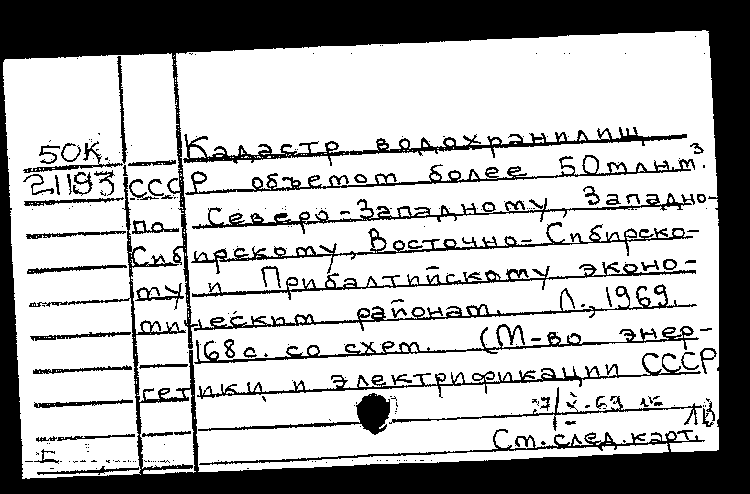 50К. Кадастр водохранилищ
21193 СССР объемом более 50 млн.м³.
по Северо-Западному, Западно-
Сибирскому, Восточно-Сибирско-
му и Прибалтийскому эконо-
мическим районам. Л., 1969.
168 с. со схем. (М-во энер-
гетики и электрификации СССР.
Ст. след. карт.